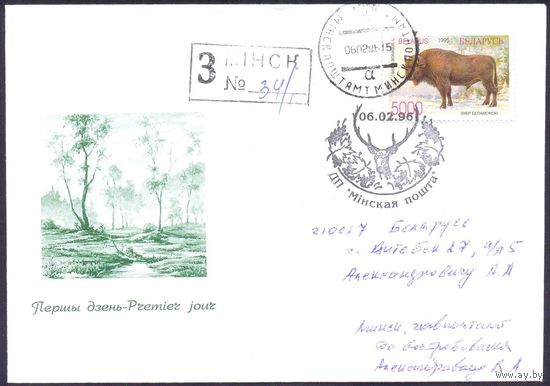 З МІНСК
№ 34/г
МІНСК ПАШТАМТ МИНСК ПОЧТАМТ
060296 15
а
BELARUS 1995 БЕЛАРУСЬ
5000
ЗУБР БЕЛАВЕЖСКІ
06.02.96
ДП "Мінская пошта"
Першы дзень-Premier jour
210027 Беларусь
г. Витебск 27, а/я 5
Александровичу А А
Минск, главпочтамт
до востребования
Александрович А А
www.ay.by